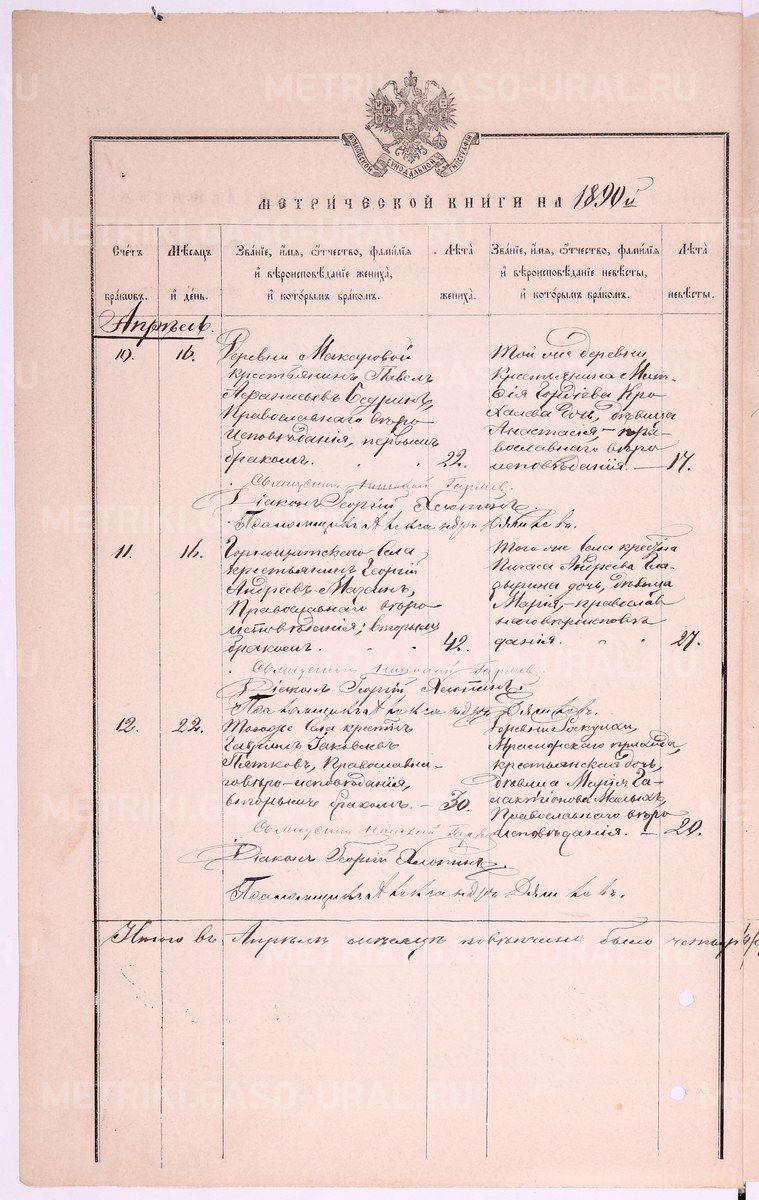 METRIKI.GASO-URAL.RU
МОСКОВСКОЙ СѴНОДАЛЬНОЙ ТИПОГРАФІИ
МЕТРИЧЕСКОЙ КНИГИ НА 1890 й
Счетъ браковъ.
Мѣсяцъ и день.
Званіе, имя, отчество, фамилія и вѣроисповѣданіе жениха, и которымъ бракомъ.
Лѣта жениха.
Званіе, имя, отчество, фамилія и вѣроисповѣданіе невѣсты, и которымъ бракомъ.
Лѣта невѣсты.
Апрѣль.
10.
16.
Деревни Макаровой
крестьянинъ Павелъ
Афанасьевъ
Православнаго вѣро
исповѣданія, первымъ
бракомъ. 22.
Той же деревни
крестьянина Мат-
фія Гордіева Кро
халева дочь, дѣвица
Анастасія, — пра
вославнаго вѣро
исповѣданія. — 17.
Священник Николай
Діаконъ Георгій Хлопинъ.
Псаломщикъ Александръ
11.
16.
Горнощитскаго села
крестьянинъ Георгій
Андреевъ
Православнаго вѣро
исповѣданія; вторымъ
бракомъ. 42.
Того же села крест-на
Андреева Гла
зырина дочь, дѣвица
Марія, — православ
наго вѣроисповѣ
данія. 27.
Священник Николай
Діаконъ Георгій Хлопинъ.
Псаломщикъ Александръ
12.
22.
Тогоже села крест-нъ
Гавріилъ Іаковлевъ
Пятковъ, Православна-
го вѣро-исповѣданія,
вторымъ бракомъ. — 30.
Деревни
Мраморскаго прихода,
крестьянская дочь,
дѣвица Марія Га-
лактіонова Малыхъ,
Православнаго вѣро
исповѣданія. — 20.
Священник Николай
Діаконъ Георгій Хлопинъ.
Псаломщикъ Александръ
Итого въ Апрѣлѣ мѣсяцѣ повѣнчано было четыре